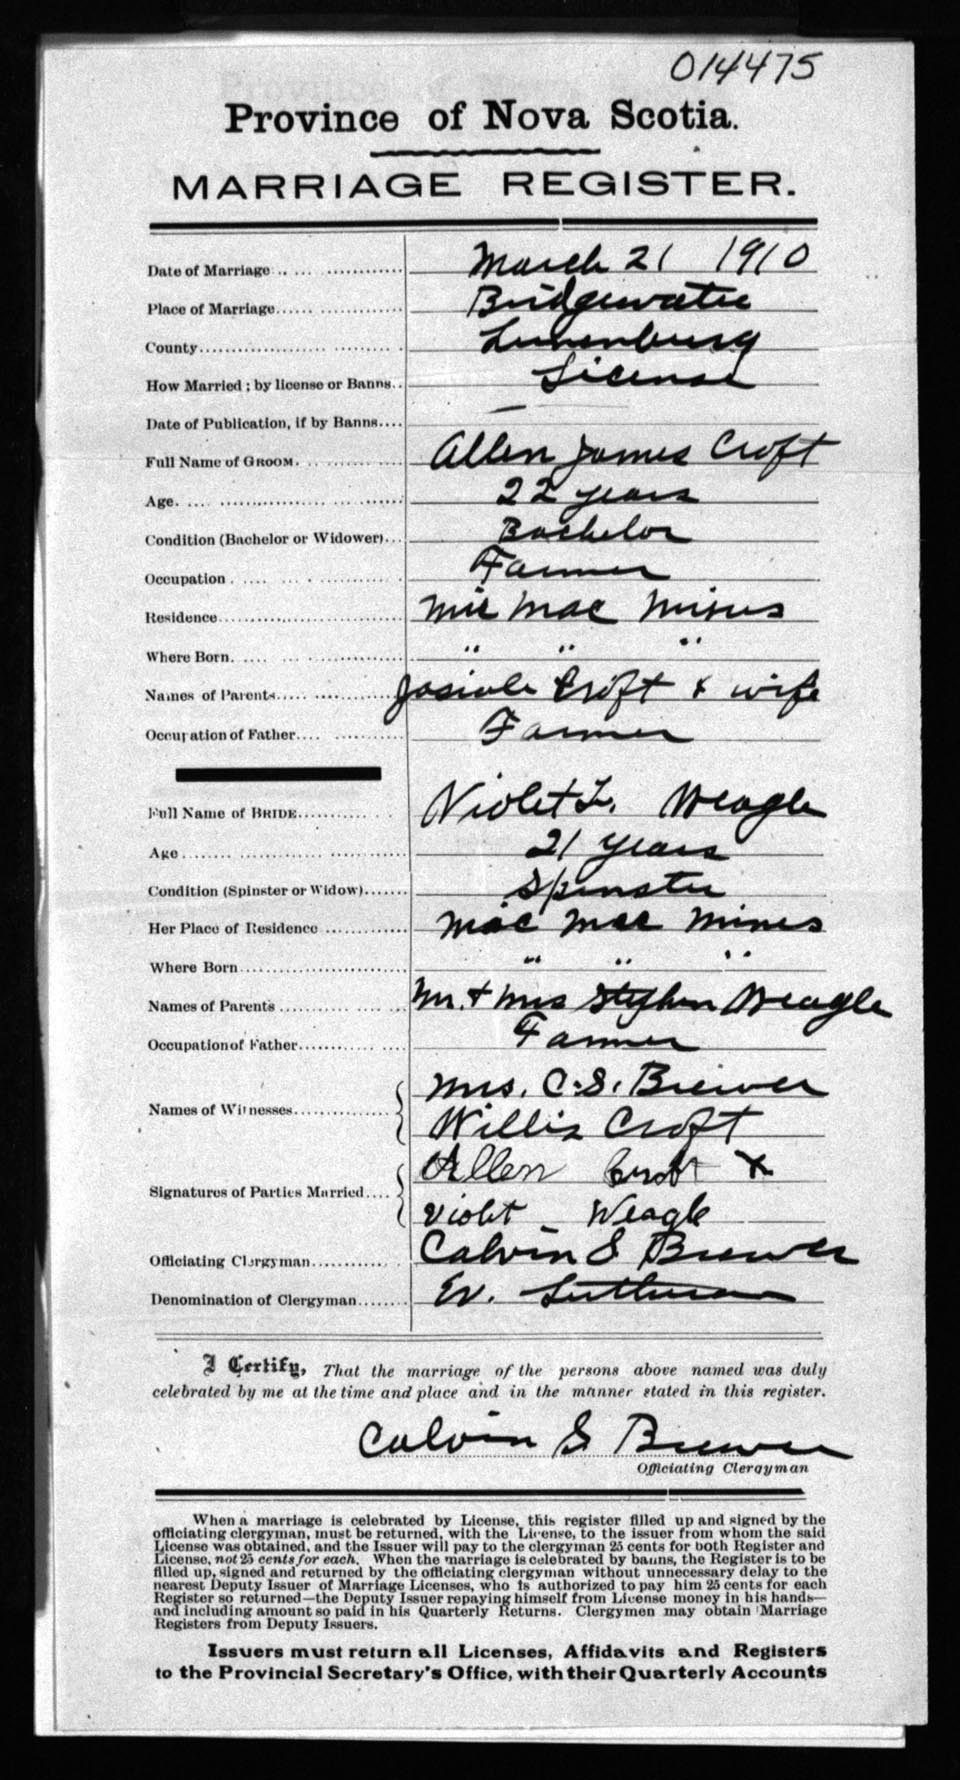 014475
Province of Nova Scotia.
MARRIAGE REGISTER.
Date of Marriage March 21 1910
Place of Marriage Bridgewater
County Lunenburg
How Married; by license or Banns License
Date of Publication, if by Banns —
Full Name of GROOM Allen James Croft
Age 22 years
Condition (Bachelor or Widower) Bachelor
Occupation Farmer
Residence Mic Mac Mines
Where Born " " "
Names of Parents Josiah Croft & wife
Occupation of Father Farmer
Full Name of BRIDE Violet L. Weagle
Age 21 years
Condition (Spinster or Widow) Spinster
Her Place of Residence Mic Mac Mines
Where Born " " "
Names of Parents Mr. & Mrs Stephen Weagle
Occupation of Father Farmer
Names of Witnesses Mrs. C. S. Brewer
Willis Croft
Signatures of Parties Married Allen Croft X
Violet Weagle
Officiating Clergyman Calvin S Brewer
Denomination of Clergyman Ev. Lutheran
I Certify, That the marriage of the persons above named was duly
celebrated by me at the time and place and in the manner stated in this register.
Calvin S Brewer
Officiating Clergyman
When a marriage is celebrated by License, this register filled up and signed by the
officiating clergyman, must be returned, with the License, to the issuer from whom the said
License was obtained, and the Issuer will pay to the clergyman 25 cents for both Register and
License, not 25 cents for each. When the marriage is celebrated by banns, the Register is to be
filled up, signed and returned by the officiating clergyman without unnecessary delay to the
nearest Deputy Issuer of Marriage Licenses, who is authorized to pay him 25 cents for each
Register so returned—the Deputy Issuer repaying himself from License money in his hands—
and including amount so paid in his Quarterly Returns. Clergymen may obtain Marriage
Registers from Deputy Issuers.
Issuers must return all Licenses, Affidavits and Registers
to the Provincial Secretary's Office, with their Quarterly Accounts